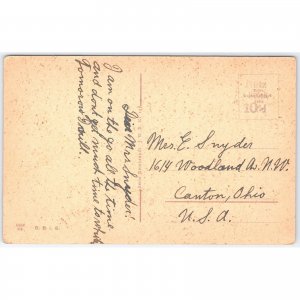 Dear Mrs Snyder!
I am on the go all the time
and dont get much time to write
Tomorow
Mrs. C. Snyder
1614 Woodland Av. N.W.
Canton, Ohio
U.S.A.